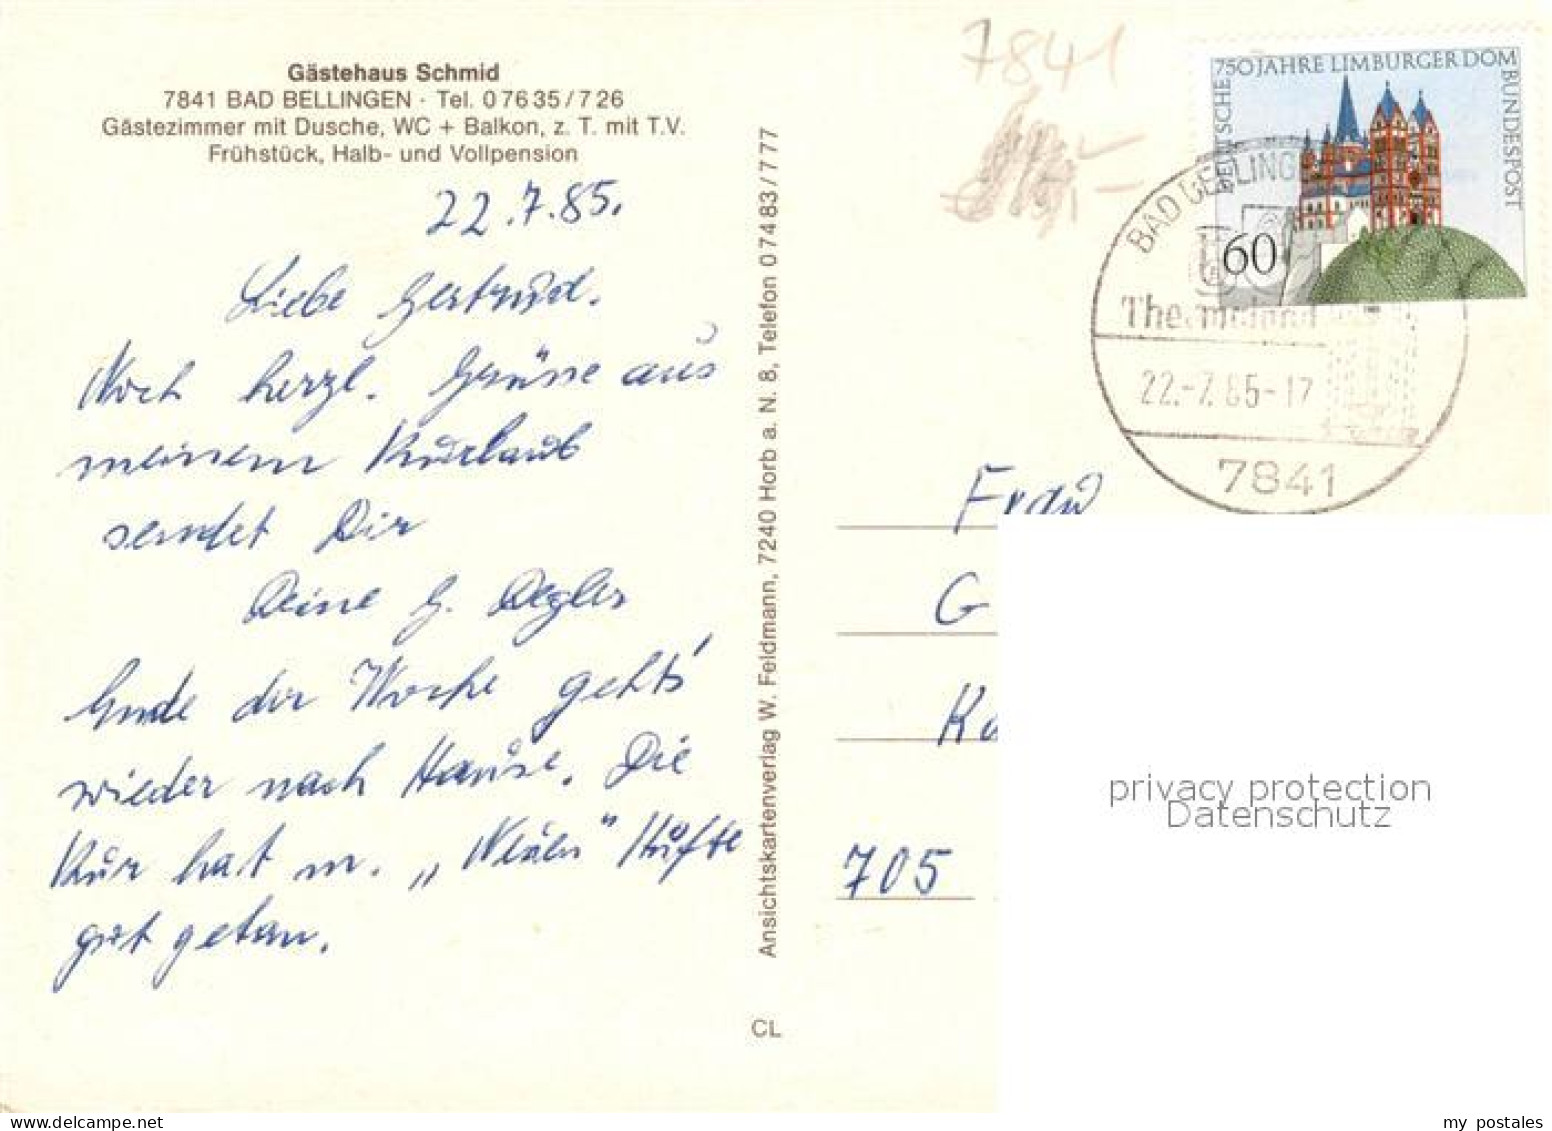 Gästehaus Schmid
7841 BAD BELLINGEN · Tel. 0 76 35 / 7 26
Gästezimmer mit Dusche, WC + Balkon, z. T. mit T.V.
Frühstück, Halb- und Vollpension
22.7.85.
Liebe Gertrud.
Noch herzl. Grüsse aus
meinem Kurlaub
sendet Dir
Deine G. Degler
Ende der Woche geht's
wieder nach Hause. Die
Kur hat m. „ " Hüfte
gut getan.
Ansichtskartenverlag W. Feldmann, 7240 Horb a. N. 8, Telefon 0 74 83 / 7 77
CL
7841
750 JAHRE LIMBURGER DOM
DEUTSCHE
BUNDESPOST
60
BAD BELLINGEN
22.-7.85-17
7841
Frau
G
Ka
705
privacy protection
Datenschutz
my postales